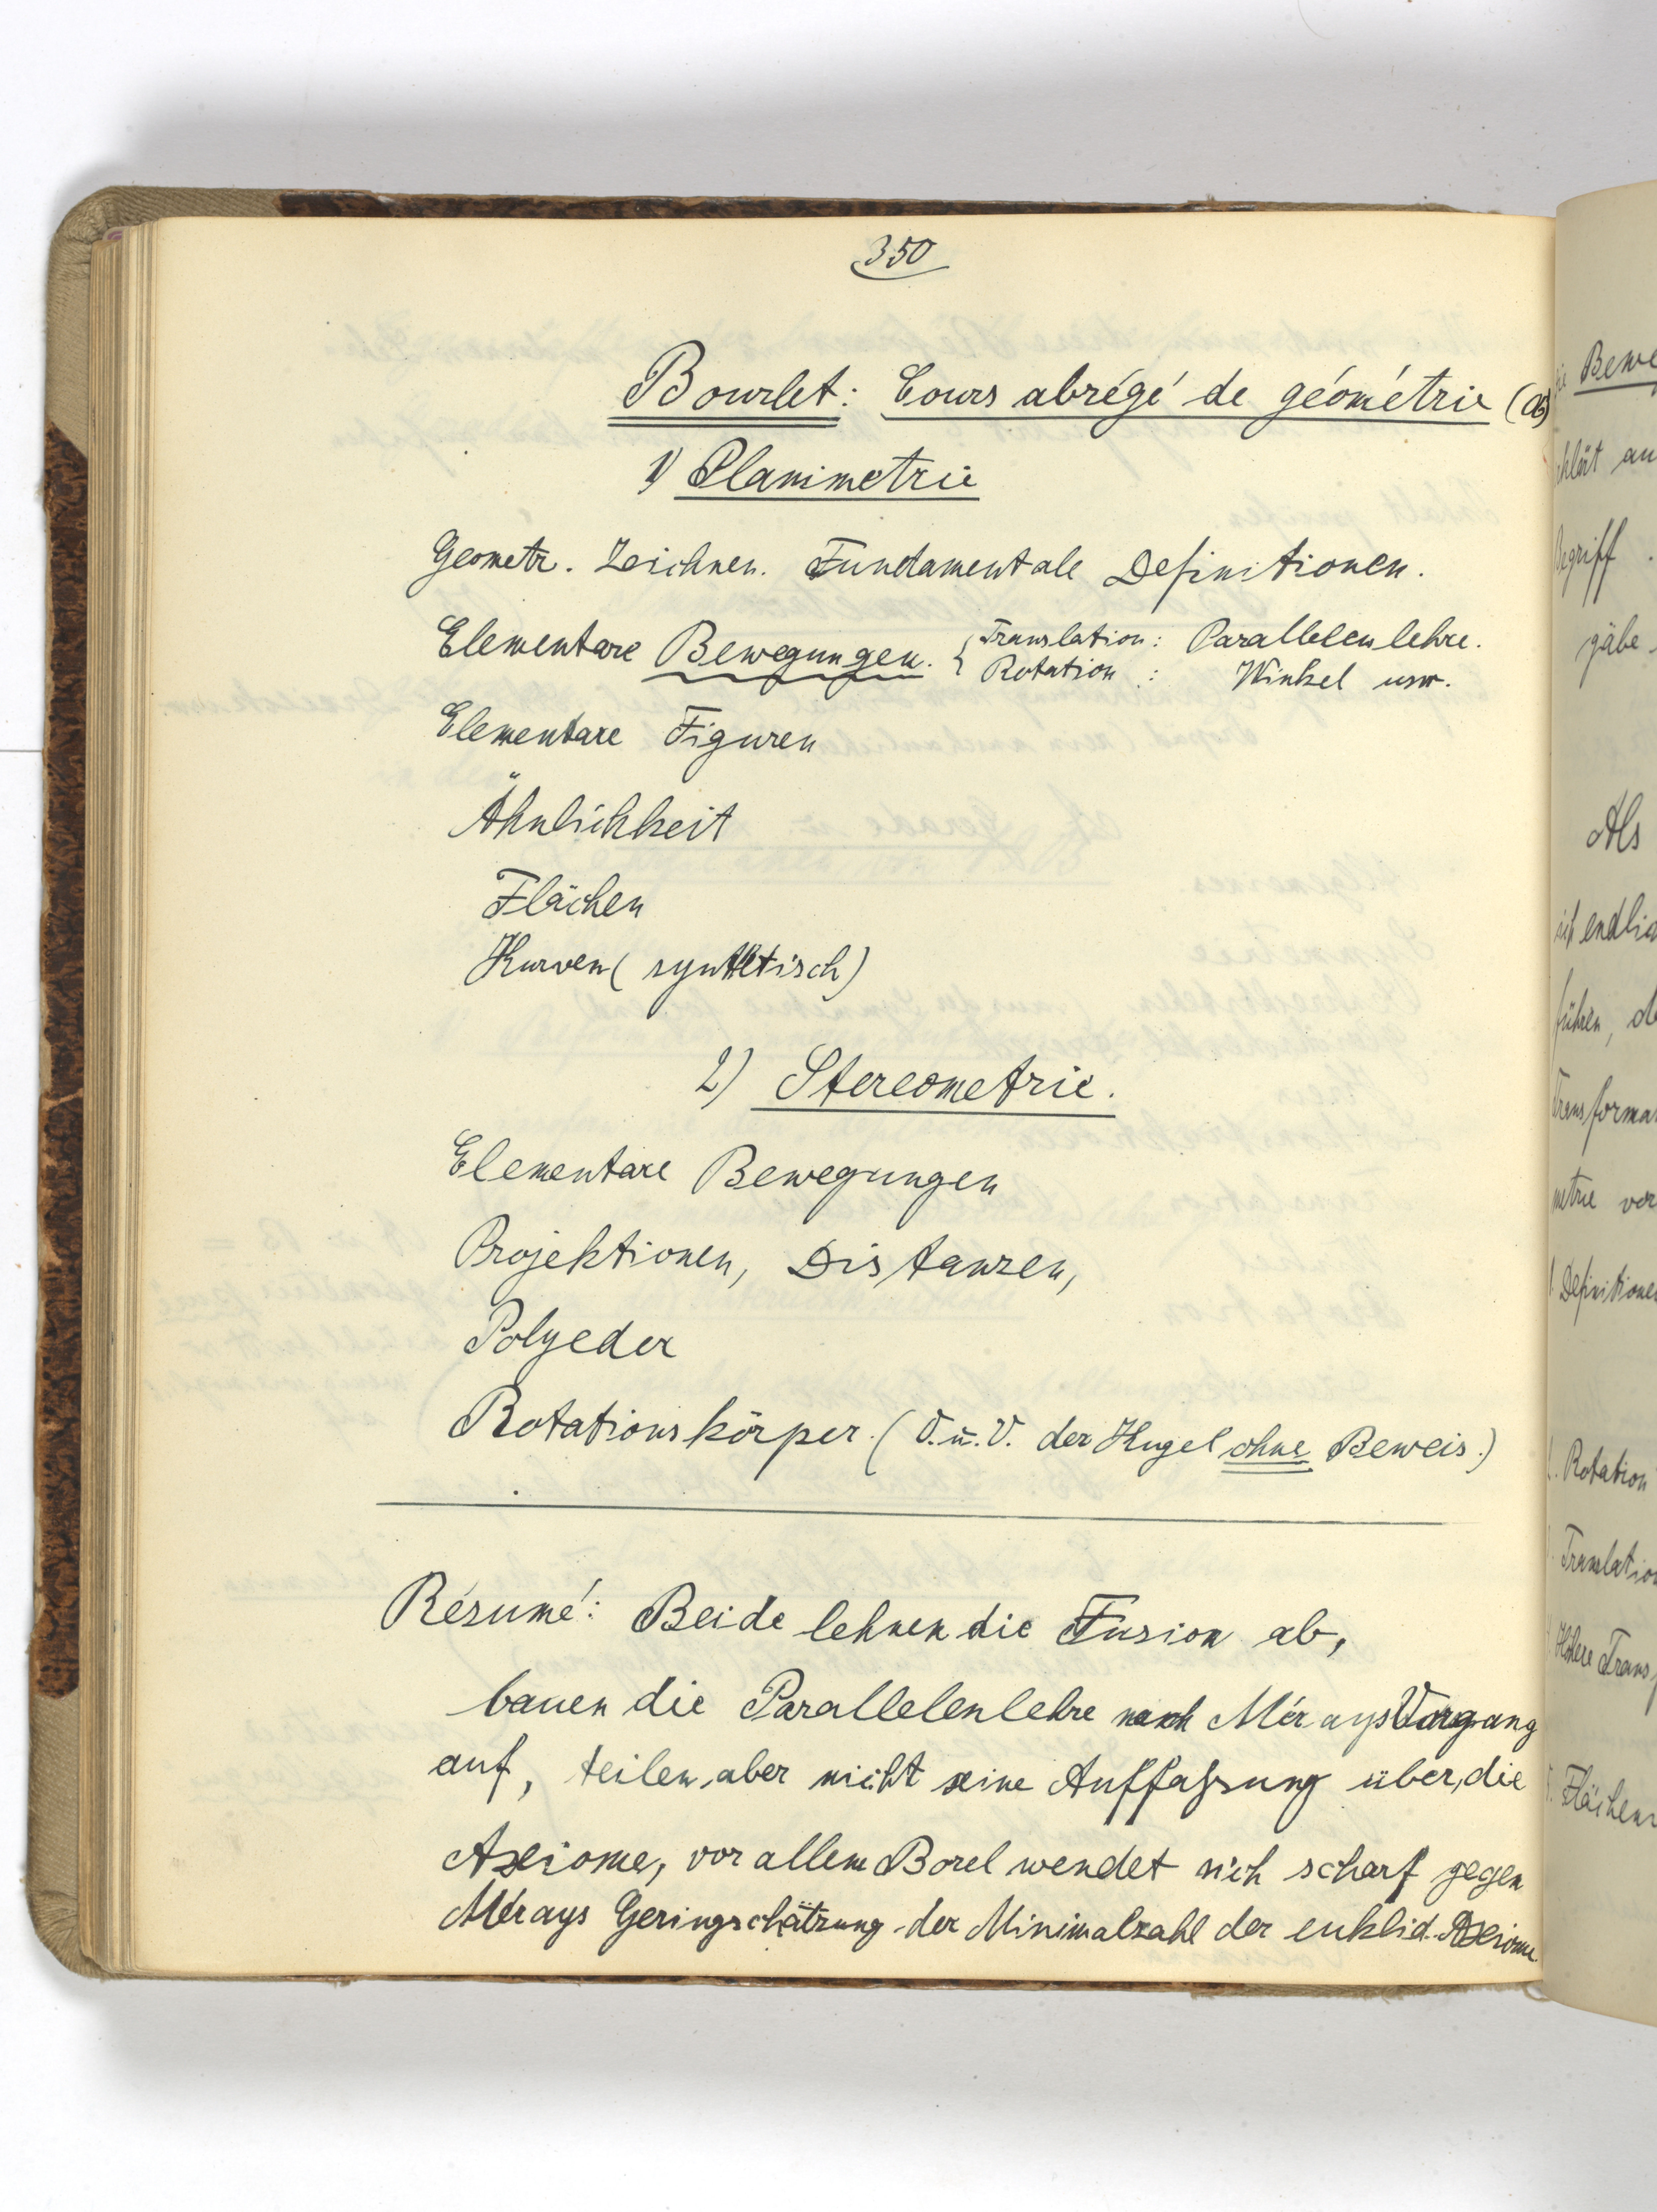 350
Bourlet: Cours abrégé de géométrie
1) Planimetrie
Geometr. Zeichnen. Fundamentale Definitionen.
Elementare Bewegungen. { Translation: Parallelenlehre.
Rotation : Winkel usw.
Elementare Figuren
Ähnlichkeit
Flächen
Kurven (synthetisch)
2) Stereometrie.
Elementare Bewegungen
Projektionen, Distanzen,
Polyeder
Rotationskörper. (O. u. V. der Kugel ohne Beweis.)
Résumé: Beide lehnen die Fusion ab,
bauen die Parallelenlehre nach Mérays Vorgang
auf, teilen aber nicht seine Auffassung über die
Axiome, vor allem Borel wendet sich scharf gegen
Mérays Geringschätzung der Minimalzahl der euklid. Axiome
Bewe
klärt au
Begriff
gäbe
Als
endlic
führen, d
Transforma
metrie vor
Definitione
Rotation
Translation
Höhere Trans
Flächen